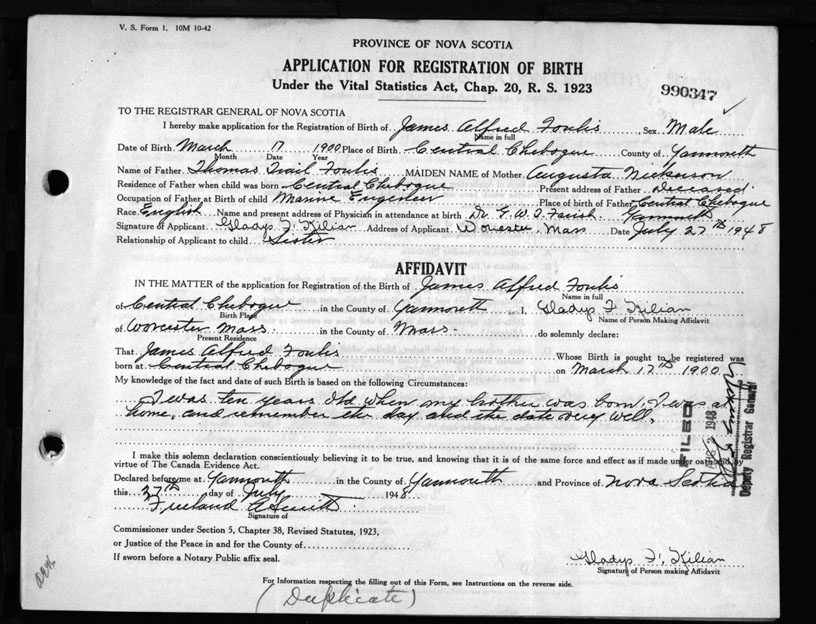 V. S. Form 1. 10M 10-42
PROVINCE OF NOVA SCOTIA
APPLICATION FOR REGISTRATION OF BIRTH
Under the Vital Statistics Act, Chap. 20, R. S. 1923
990347
TO THE REGISTRAR GENERAL OF NOVA SCOTIA
I hereby make application for the Registration of Birth of James Alfred Foulis Sex Male
Name in full
Date of Birth March 17 1900 Place of Birth Central Chebogue County of Yarmouth
Month Date Year
Name of Father Thomas Trail Foulis MAIDEN NAME of Mother Augusta Nickerson
Residence of Father when child was born Central Chebogue Present address of Father Deceased
Occupation of Father at Birth of child Marine Engineer Place of birth of Father Central Chebogue
Race English Name and present address of Physician in attendance at birth Dr. Farish Yarmouth
Signature of Applicant Gladys F. Kilian Address of Applicant Worcester, Mass Date July 27th 1948
Relationship of Applicant to child Sister
AFFIDAVIT
IN THE MATTER of the application for Registration of the Birth of James Alfred Foulis
Name in full
of Central Chebogue in the County of Yarmouth I, Gladys F. Kilian
Birth Place Name of Person Making Affidavit
of Worcester Mass in the County of Mass - do solemnly declare:
Present Residence
That James Alfred Foulis Whose Birth is sought to be registered was
born at Central Chebogue on March 17th 1900
My knowledge of the fact and date of such Birth is based on the following Circumstances:
I was ten years old when my brother was born, I was at
home, and remember the day and the date very well.
I make this solemn declaration conscientiously believing it to be true, and knowing that it is of the same force and effect as if made under oath and by
virtue of The Canada Evidence Act.
Declared before me at Yarmouth in the County of Yarmouth and Province of Nova Scotia
this 27th day of July 1948
Signature of
FILED
1948
Deputy Registrar General
Commissioner under Section 5, Chapter 38, Revised Statutes, 1923,
or Justice of the Peace in and for the County of
If sworn before a Notary Public affix seal.
Gladys F. Kilian
Signature of Person making Affidavit
For Information respecting the filling out of this Form, see Instructions on the reverse side.
(Duplicate)